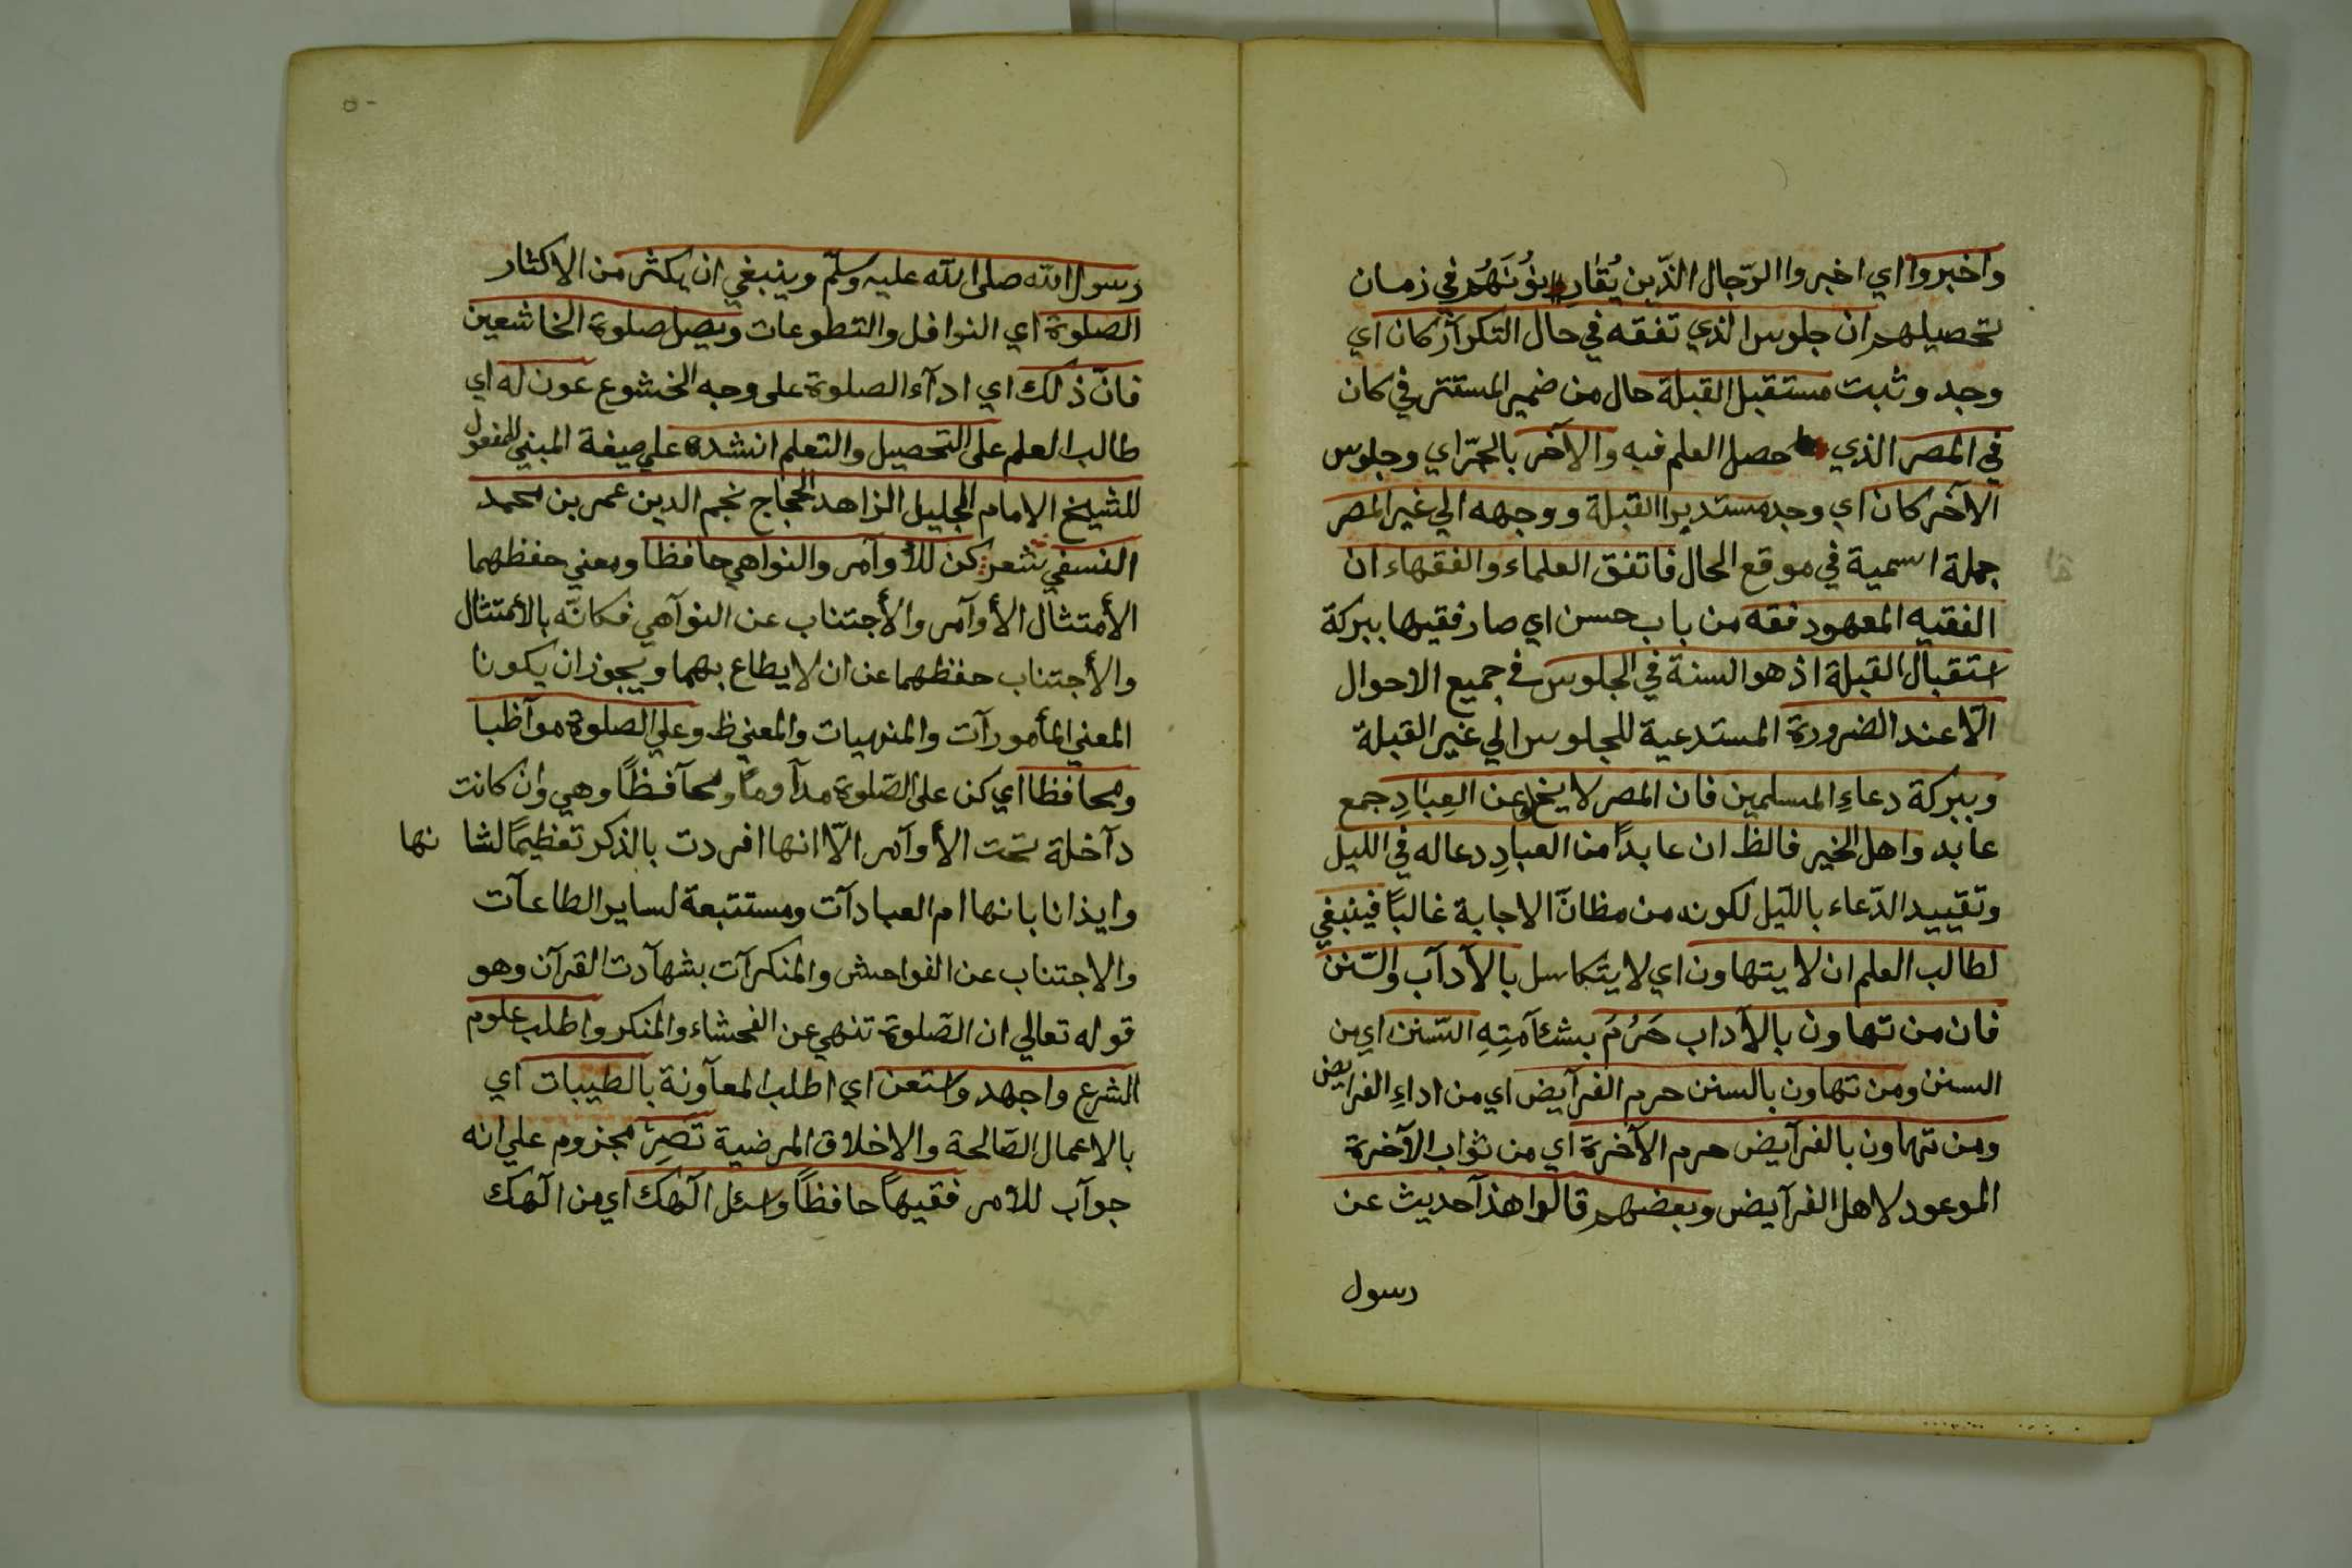 واخبروا اي اخبروا الرّجال الذّين يُقارنونَهُم في زمان
تحصيلهم ان جلوس الذي تفقه في حال التكرار كان اي
وجد وثبت مستقبل القبلة حال من ضمير المستتر في كان
في المصر الذي حصل العلم فيه والآخر بالجرّ اي وجلوس
الآخر كان اي وجد مستدبرا القبلة ووجهه الي غير المصر
جملة اسمية في موقع الحال فاتفق العلماء والفقهاء ان
الفقيه المعهود فقه من باب حسن اي صار فقيها ببركة
استقبال القبلة اذ هو السنة في الجلوس في جميع الاحوال
الّا عند الضرورة المستدعية للجلوس الي غير القبلة
وببركة دعاءِ المسلمين فان المصر لا يخلو عن العِبَادِ جمع
عابد واهل الخير فالظ ان عابداً من العبادِ دعا له في الليل
وتقييد الدّعاء بالليل لكونه من مظانّ الاجابة غالباً فينبغي
لطالب العلم ان لا يتهاون اي لا يتكاسل بالآدآب والسّنن
فان من تهاون بالآداب حَرُمَ بشئآمتِهِ السّنن اي من
السنن ومن تهاون بالسنن حرم الفرآيض اي من اداءِ الفرايض
ومن تهاون بالفرآيض حرم الآخرة اي من ثواب الآخرة
الموعود لاهل الفرآيض وبعضهم قالوا هذآ حديث عن
رسول
رسول الله صلى الله عليه وسلّم وينبغي ان يكثر من الاكثار
الصلوة اي النوافل والتطوعات ويصل صلوة الخاشعين
فانّ ذلك اي ادآء الصلوة على وجه الخشوع عون له اي
طالب العلم على التحصيل والتعلم انشده علي صيغة المبني للمفعول
للشيخ الامام الجليل الزاهد الحجاج نجم الدين عمر بن محمد
النسفي شعر كن للأوآمر والنواهي حافظا ومعني حفظهما
الأمتثال الأوآمر والأجتناب عن النوآهي فكانّه بالأمتثال
والأجتناب حفظهما عن ان لا يطاع بهما ويجوز ان يكونا
المعني المأمورآت والمنهيات والمعني ظ وعلي الصلوة موآظبا
ومحافظا اي كن على الصّلوة مدآوماً ومحآفظاً وهي وان كانت
دآخلة تحت الأوآمر الّا انها افردت بالذكر تعظيماً لشانها
وايذانا بانها ام العبادآت ومستتبعة لساير الطاعآت
والاجتناب عن الفواحش والمنكرآت بشهآدت القرآن وهو
قوله تعالي ان الصّلوة تنهي عن الفحشاء والمنكر واطلب علوم
الشرع واجهد واستعن اي اطلب المعآونة بالطيبات اي
بالاعمال الصّالحة والاخلاق المرضية تَصِرْ مجزوم علي انه
جوآب للامر فقيهاً حافظاً واسئل الٓهك اي من الٓهك